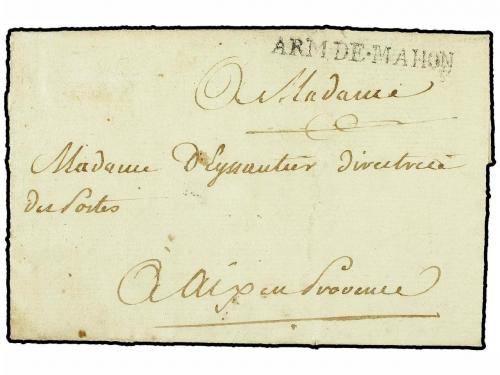 ARM.DE·MAHON
A Madame
Madame D'Eyssautier directrice
des Postes
A aix en Provence